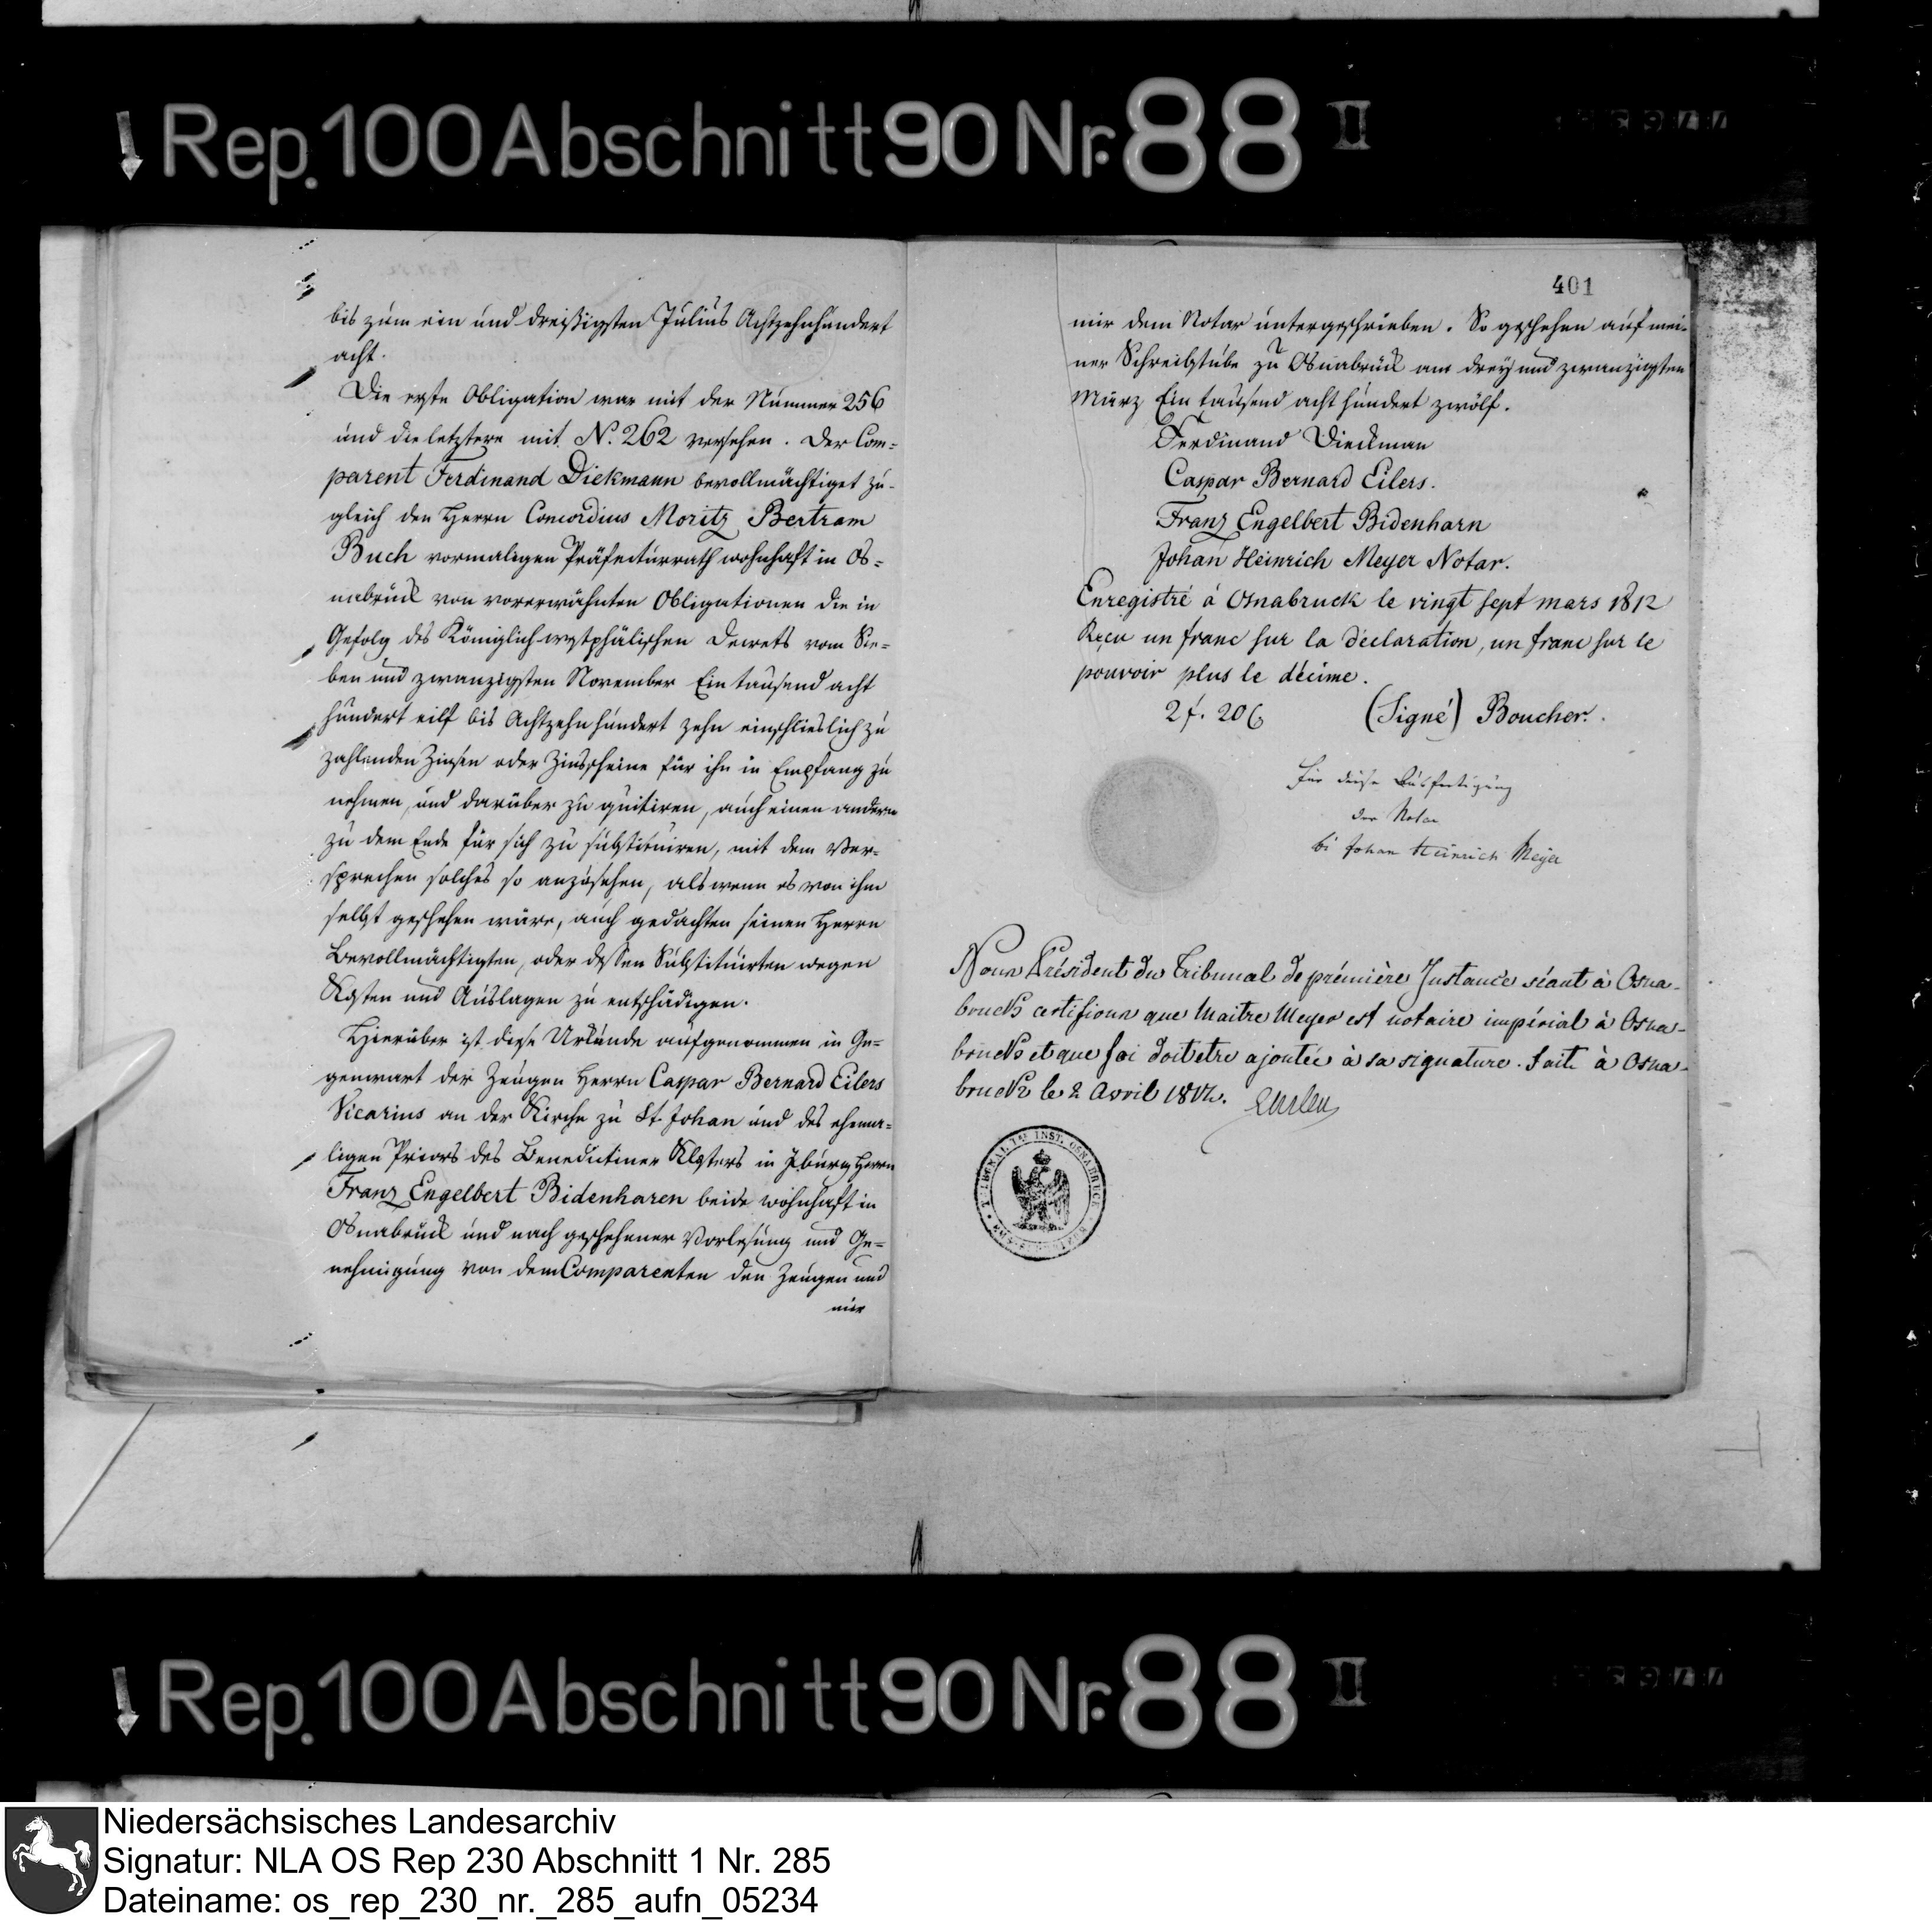 Rep. 100 Abschnitt 90 Nr. 88 II
bis zum ein und dreißigsten Julius Achtzehnhundert
acht.
Die erste Obligation war mit der Nummer 256
und die letztere mit N. 262 versehen. Der Com-
parent Ferdinand Diekmann bevollmächtiget zu-
gleich den Herrn Concordius Moritz Bertram
Buch vormaligen Präfecturrath wohnhaft in Os-
nabrück von vorerwähnten Obligationen die in
Gefolg des Königlich westphälischen Decrets vom Sie-
ben und zwanzigsten November Ein tausend acht
hundert eilf bis Achtzehn hundert zehn einschlieslich zu
zahlenden Zinsen oder Zinsscheine für ihn in Empfang zu
nehmen, und darüber zu quitiren, auch einen andern
zu dem Ende für sich zu substituiren, mit dem Ver-
sprechen solches so anzusehen, als wenn es von ihm
selbst geschehen wäre, auch gedachten seinen Herrn
Bevollmächtigten, oder dessen Substituirten wegen
Kosten und Auslagen zu entschädigen.
Hierüber ist diese Urkunde aufgenommen in Ge-
genwart der Zeugen Herrn Caspar Bernard Eilers
Vicarius an der Kirche zu St. Johan und des ehema-
ligen Priors des Benedictiner Klosters in Iburg Herrn
Franz Engelbert Bidenharen beide wohnhaft in
Osnabrück und nach geschehener Vorlesung und Ge-
nehmigung von dem Comparenten den Zeugen und
mir
401
mir dem Notar unterschrieben. So geschehen auf mei-
ner Schreibstube zu Osnabrück am drey und zwanzigsten
März Ein tausend acht hundert zwölf.
Ferdinand Dieckman
Caspar Bernard Eilers.
Franz Engelbert Bidenharn
Johan Heinrich Meyer Notar.
Enregistré à Osnabruck le vingt sept mars 1812
Reçu un franc sur la déclaration, un franc sur le
pouvoir plus le décime.
2 f. 20 c (Signé) Boucher.
Für diese Ausfertigung
der Notar
Johan Heinrich Meyer
Nous Président du Tribunal de prémière Instance séant à Osna-
bruck certifions que Maitre Meyer est notaire impérial à Osna-
bruck et que foi doit etre ajoutée à sa signature. Fait à Osna-
bruck le 2 Avril 1812.
TRIBUNAL 1re INST. OSNABRUCK
Rep. 100 Abschnitt 90 Nr. 88 II
Niedersächsisches Landesarchiv
Signatur: NLA OS Rep 230 Abschnitt 1 Nr. 285
Dateiname: os_rep_230_nr._285_aufn_05234